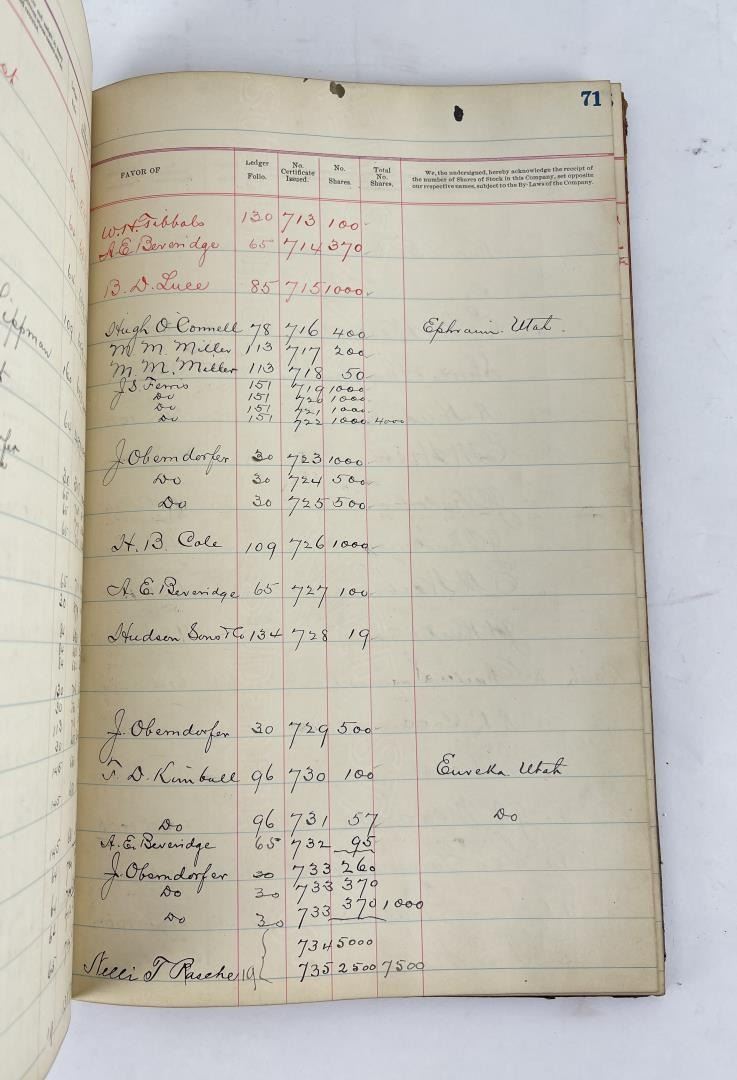 71
FAVOR OF
Ledger Folio.
No. Certificate Issued.
No. Shares.
Total No. Shares.
We, the undersigned, hereby acknowledge the receipt of
the number of Shares of Stock in this Company, set opposite
our respective names, subject to the By-Laws of the Company.
W. H. Tibbals 130 713 100
A. E. Beveridge 65 714 370
B. D. Luce 85 715 1000
Hugh O'Connell 78 716 400 Ephraim Utah.
M. M. Miller 113 717 200
M. M. Miller 113 718 50
J S Ferris 151 719 1000
Do 151 720 1000
Do 151 721 1000
Do 151 722 1000 4000
J. Oberndorfer 30 723 1000
Do 30 724 500
Do 30 725 500
H. B. Cole 109 726 1000
A. E. Beveridge 65 727 100
Hudson Sons & Co 134 728 19
J. Oberndorfer 30 729 500
T. D. Kimball 96 730 100 Eureka Utah
Do 96 731 57 Do
A. E. Beveridge 65 732 95
J. Oberndorfer 30 733 260
Do 30 733 370
Do 30 733 370 1000
734 5000
Nelli T Rasche 19 735 2500 7500